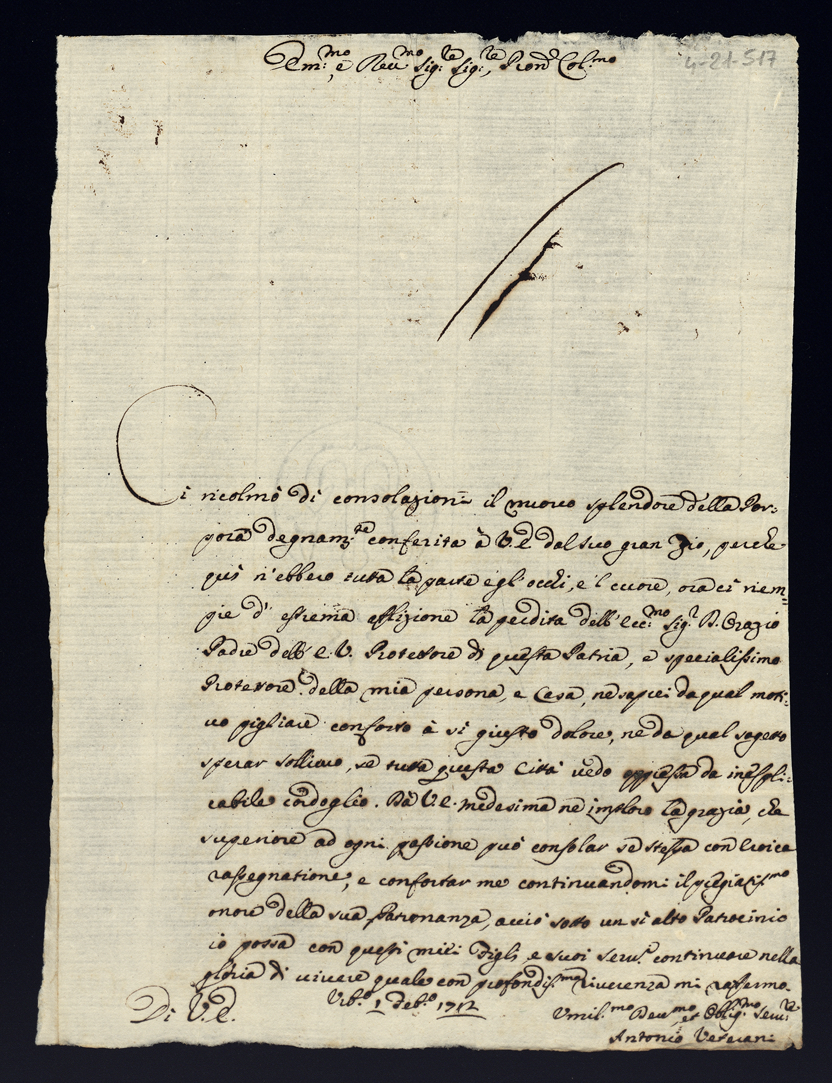 Em:mo e Reu:mo Sig:re Sig:re, Pron: Col:mo
4-21-517
Ci ricolmò di consolazion: il nuouo splendore della Por:
pora degnam:te conferita à V.E. dal suo gran Zio, perche
qui n'ebbero tutta la parte e gl'occhi, e 'l cuore, ora ci riem:
pie d'estrema afflizione la perdita dell'Ecc:mo Sig:r D. Orazio
Padre dell'E.V. Protettore di questa Patria, e specialissimo
Protettore della mia persona, e Casa, ne saprei da qual moti:
uo pigliare conforto à si giusto dolore, ne da qual sogetto
sperar sollieuo, se tutta questa Città uedo oppressa da inespli:
cabile cordoglio. Da V.E. medesima ne imploro la grazia, che
superiore ad ogni passione può consolar se stessa con eroica
rassegnatione, e confortar me continuandomi il pregiatis:mo
onore della sua Patronanza, acciò sotto un si alto Patrocinio
io possa con questi miei Figli, e suoi seru:i continuare nella
gloria di uiuere quale con profondis:ma riuerenza mi rafermo.
Di V.E.
Urb:o 1 Feb:o 1712
Vmil:mo Deu:mo et Oblig:mo Seru:re
Antonio Veterani